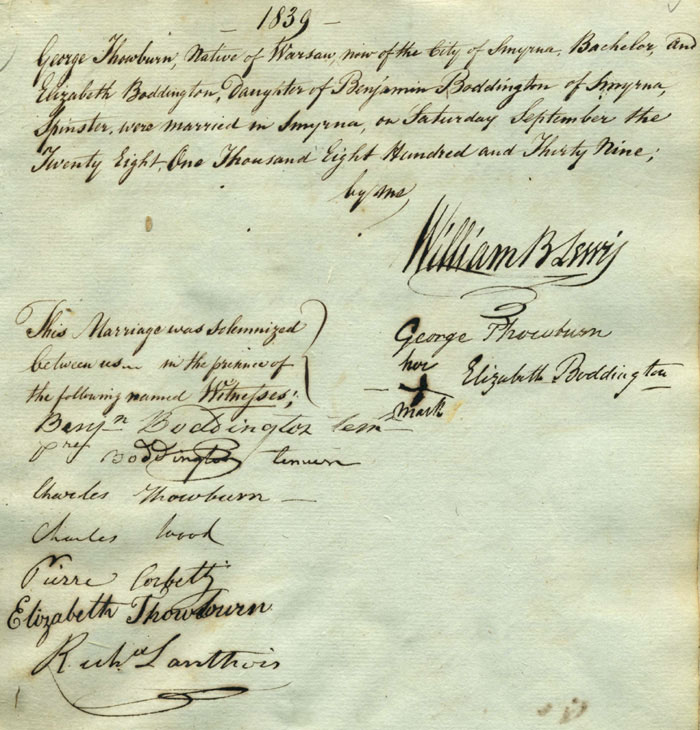 — 1839 —
George Thowburn, Native of Warsaw, now of the City of Smyrna, Bachelor, and
Elizabeth Boddington, Daughter of Benjamin Boddington of Smyrna,
Spinster, were married in Smyrna, on Saturday September the
Twenty Eight, One Thousand Eight Hundred and Thirty Nine;
by me,
William B Lewis
This Marriage was solemnized
between us in the presence of
the following named Witnesses;
George Thowburn
her
Elizabeth Boddington
mark
Benjn Boddington
Boddington
Charles Thowburn —
Charles Wood
Pierre Corbetti
Elizabeth Thowburn
Richd